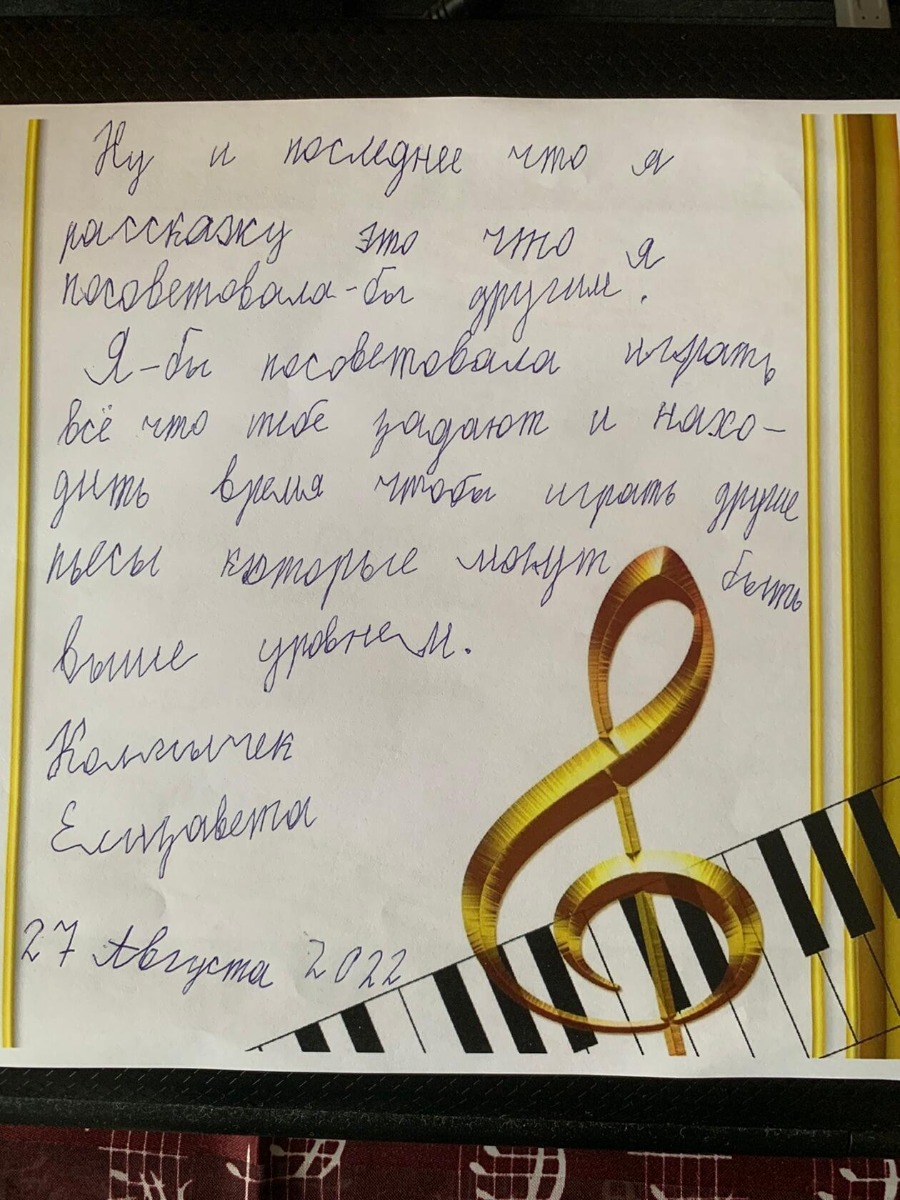 Ну и последнее что я
расскажу это что я
посоветовала-бы другим.
Я-бы посоветовала играть
всё что тебе задают и нахо-
дить время чтобы играть другие
пьесы которые могут быть
выше уровнем.
Елизавета
27 Августа 2022